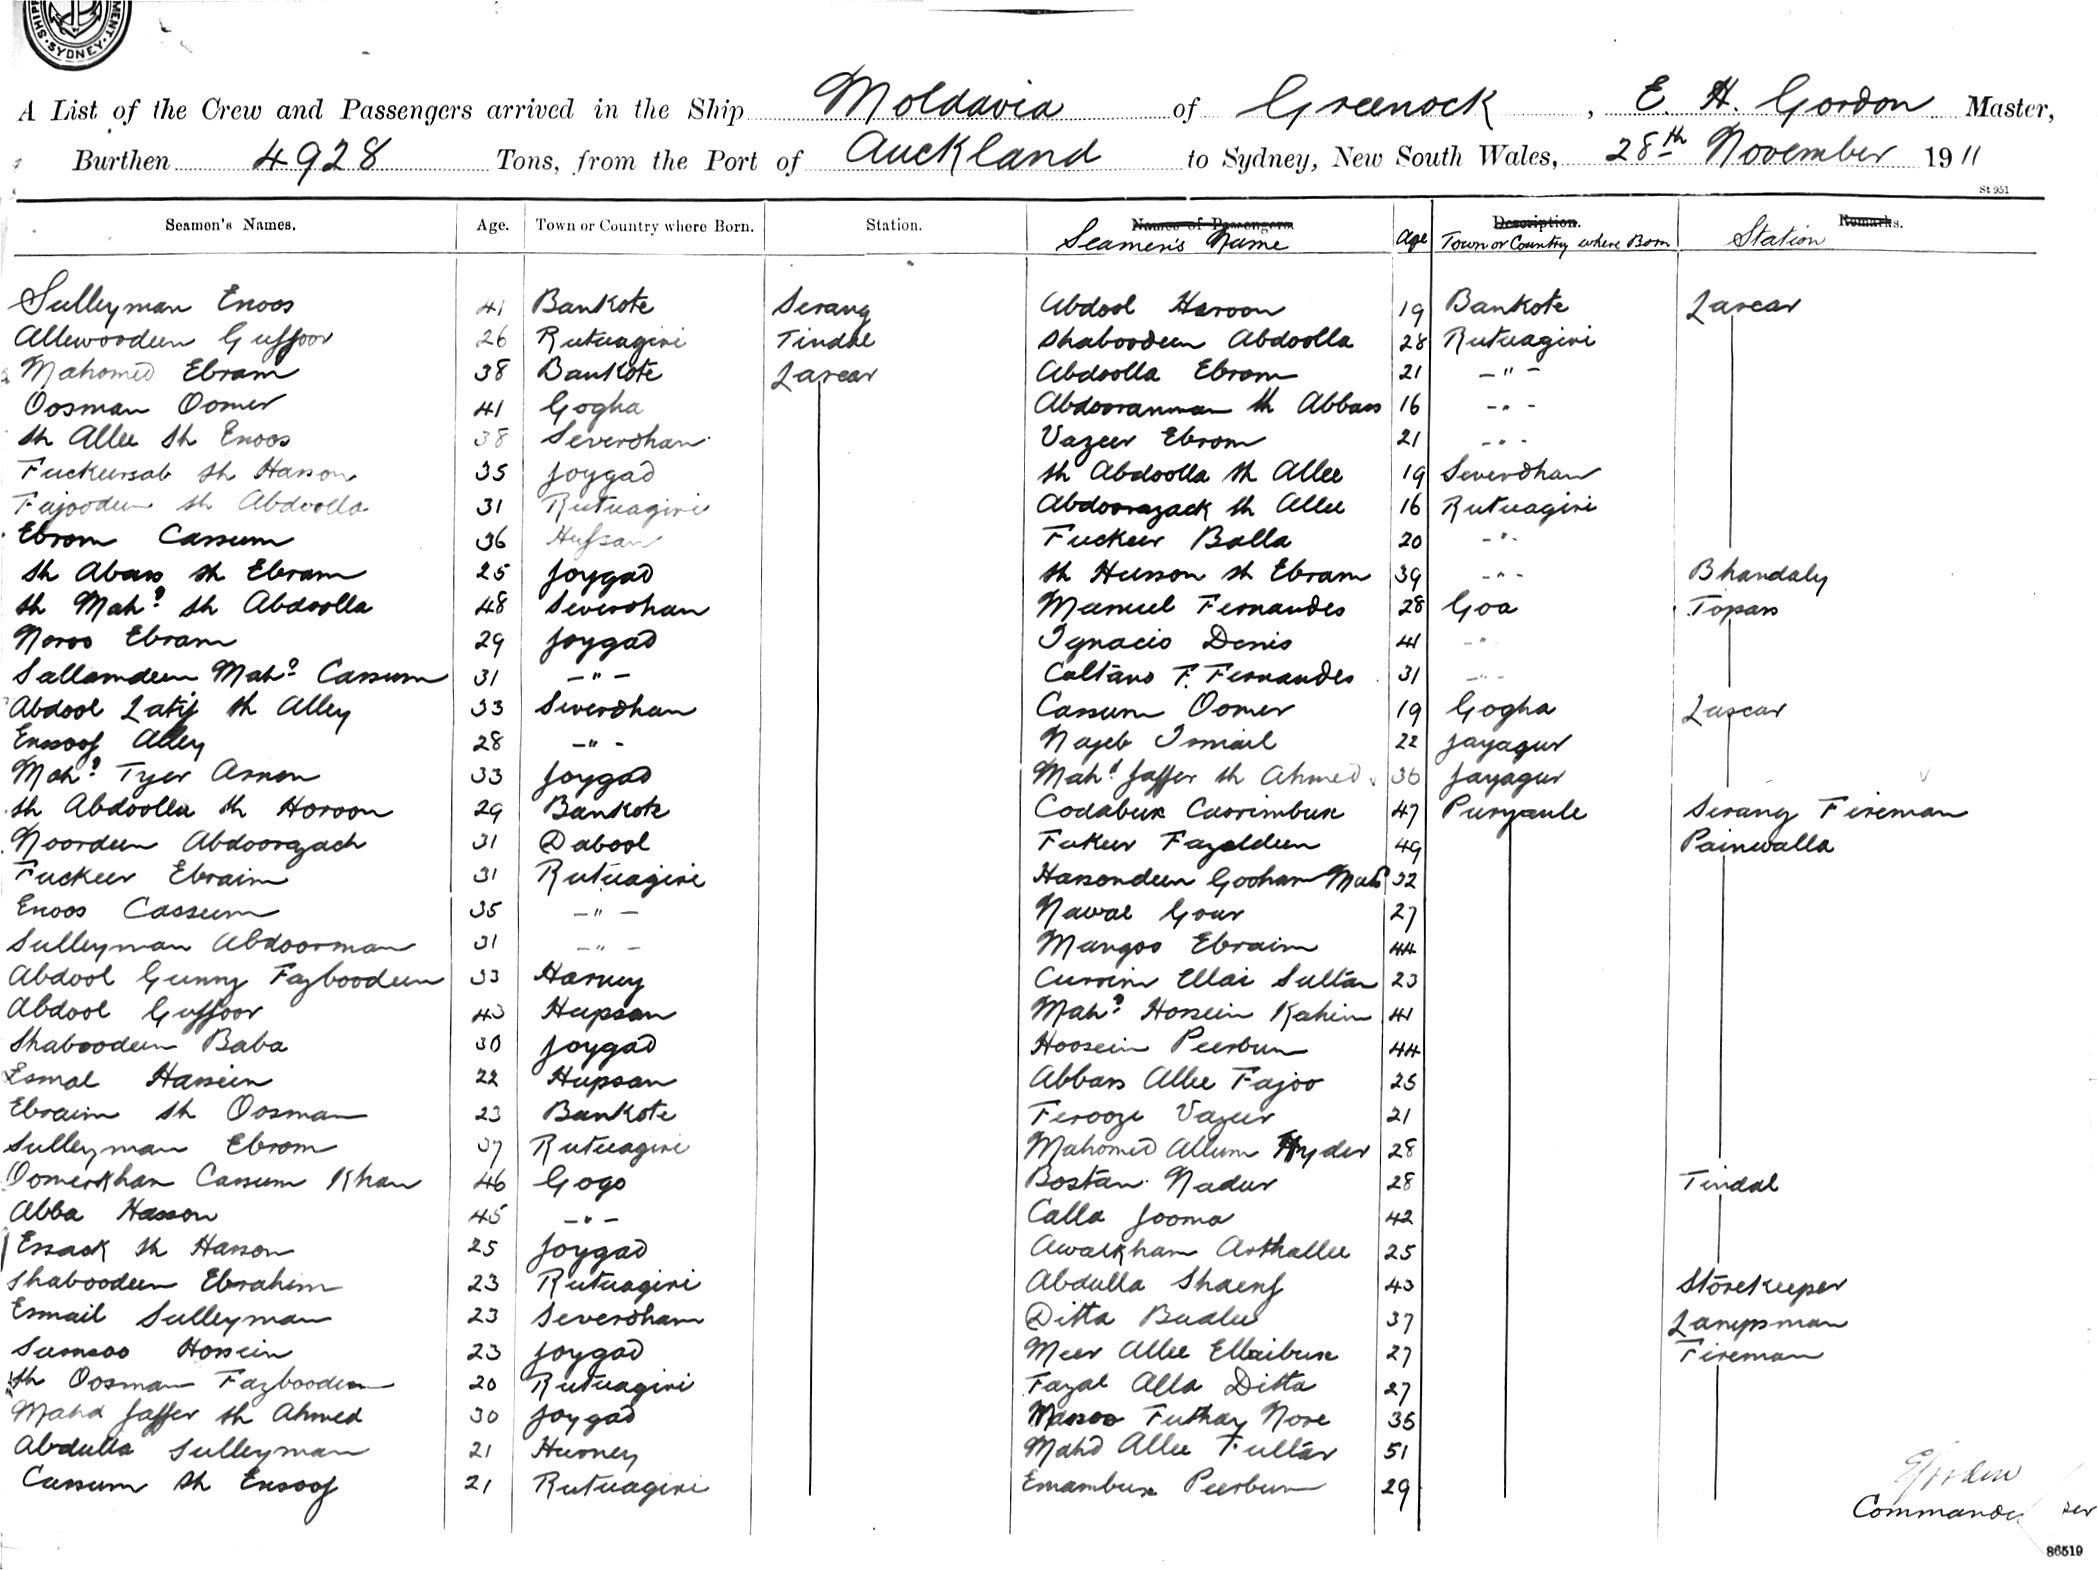 MENT · SYDNEY · SHIPP
A List of the Crew and Passengers arrived in the Ship Moldavia of Greenock, E. H. Gordon Master,
Burthen 4928 Tons, from the Port of Auckland to Sydney, New South Wales, 28th November 1911
St 951
Seamen's Names. Age. Town or Country where Born. Station. Names of Passengers Description. Remarks.
Seamen's Name Age Town or Country where Born Station
Sulleyman Enoos 41 Bankote Serang Abdool Haroon 19 Bankote Lascar
Allewoodeen Guffoor 26 Rutuagiri Tindal Shaboodeen Abdoolla 28 Rutuagiri
Mahomed Ebram 38 Bankote Lascar Abdoolla Ebrom 21 -"-
Oosman Oomer 41 Gogha Abdooranman Sh Abbass 16 -"-
Sh Allee Sh Enoos 38 Severdhan Vazeer Ebrom 21 -"-
Fuckeersab Sh Hasson 35 Joygad Sh Abdoolla Sh Allee 19 Severdhan
Fajoodeen Sh Abdoolla 31 Rutuagiri Abdoorazack Sh Allee 16 Rutuagiri
Ebrom Cassum 36 Hufsan Fuckeer Balla 20 -"-
Sh Abass Sh Ebram 25 Joygad Sh Husson Sh Ebram 39 -"- Bhandaly
Sh Mahd Sh Abdoolla 48 Severdhan Manuel Fernandes 28 Goa Topass
Noroo Ebram 29 Joygad Ignacio Denis 41 -"-
Sallamdeen Mahd Cassum 31 -"- Caltano F. Fernandes 31 -"-
Abdool Latif Sh Alley 33 Severdhan Cassum Oomer 19 Gogha Lascar
Enssoof Alley 28 -"- Najeb Ismail 22 Jayagur
Mahd Tyer Asmon 33 Joygad Mahd Jaffer Sh Ahmed 30 Jayagur
Sh Abdoolla Sh Horoon 29 Bankote Codabux Carrimbux 47 Punjaule Serang Fireman
Noordeen Abdoorazach 31 Dabool Fakeer Fazaldeen 49 Painwalla
Fuckeer Ebraim 31 Rutuagiri Hassondeen Gooham Mahd 32
Enoos Cassum 35 -"- Nawal Gour 27
Sulleyman Abdoorman 31 -"- Mangoo Ebraim 44
Abdool Gunny Fazboodeen 33 Harney Currim Ellai Sultan 23
Abdool Guffoor 43 Hupsan Mahd Hossein Rahim 41
Shaboodeen Baba 30 Joygad Hoosein Peerbux 44
Esmal Hassein 22 Hupsan Abbass Allee Fajoo 25
Ebraim Sh Oosman 23 Bankote Ferooze Vazeer 21
Sulleyman Ebrom 37 Rutuagiri Mahomed Allum Hyder 28
Oomerkhan Cassum Khan 46 Gogo Bostan Nadur 28 Tindal
Abba Hasson 45 -"- Calla Jooma 42
Essack Sh Hasson 25 Joygad Awalkham Arthallee 25
Shaboodeen Ebrahim 23 Rutuagiri Abdulla Shaerif 43 Storekeeper
Esmail Sulleyman 23 Severdham Ditta Budlee 37 Lampsman
Sumsoo Hossein 23 Joygad Meer Allee Ellaibux 27 Fireman
Sh Oosman Fazboodeen 20 Rutuagiri Fazal Alla Ditta 27
Mahd Jaffer Sh Ahmed 30 Joygad Massoo Futhay Nore 36
Abdulla Sulleyman 21 Hurney Mahd Allee Fultar 51
Cassum Sh Ensoof 21 Rutuagiri Emambux Peerbux 29
Commander
86519